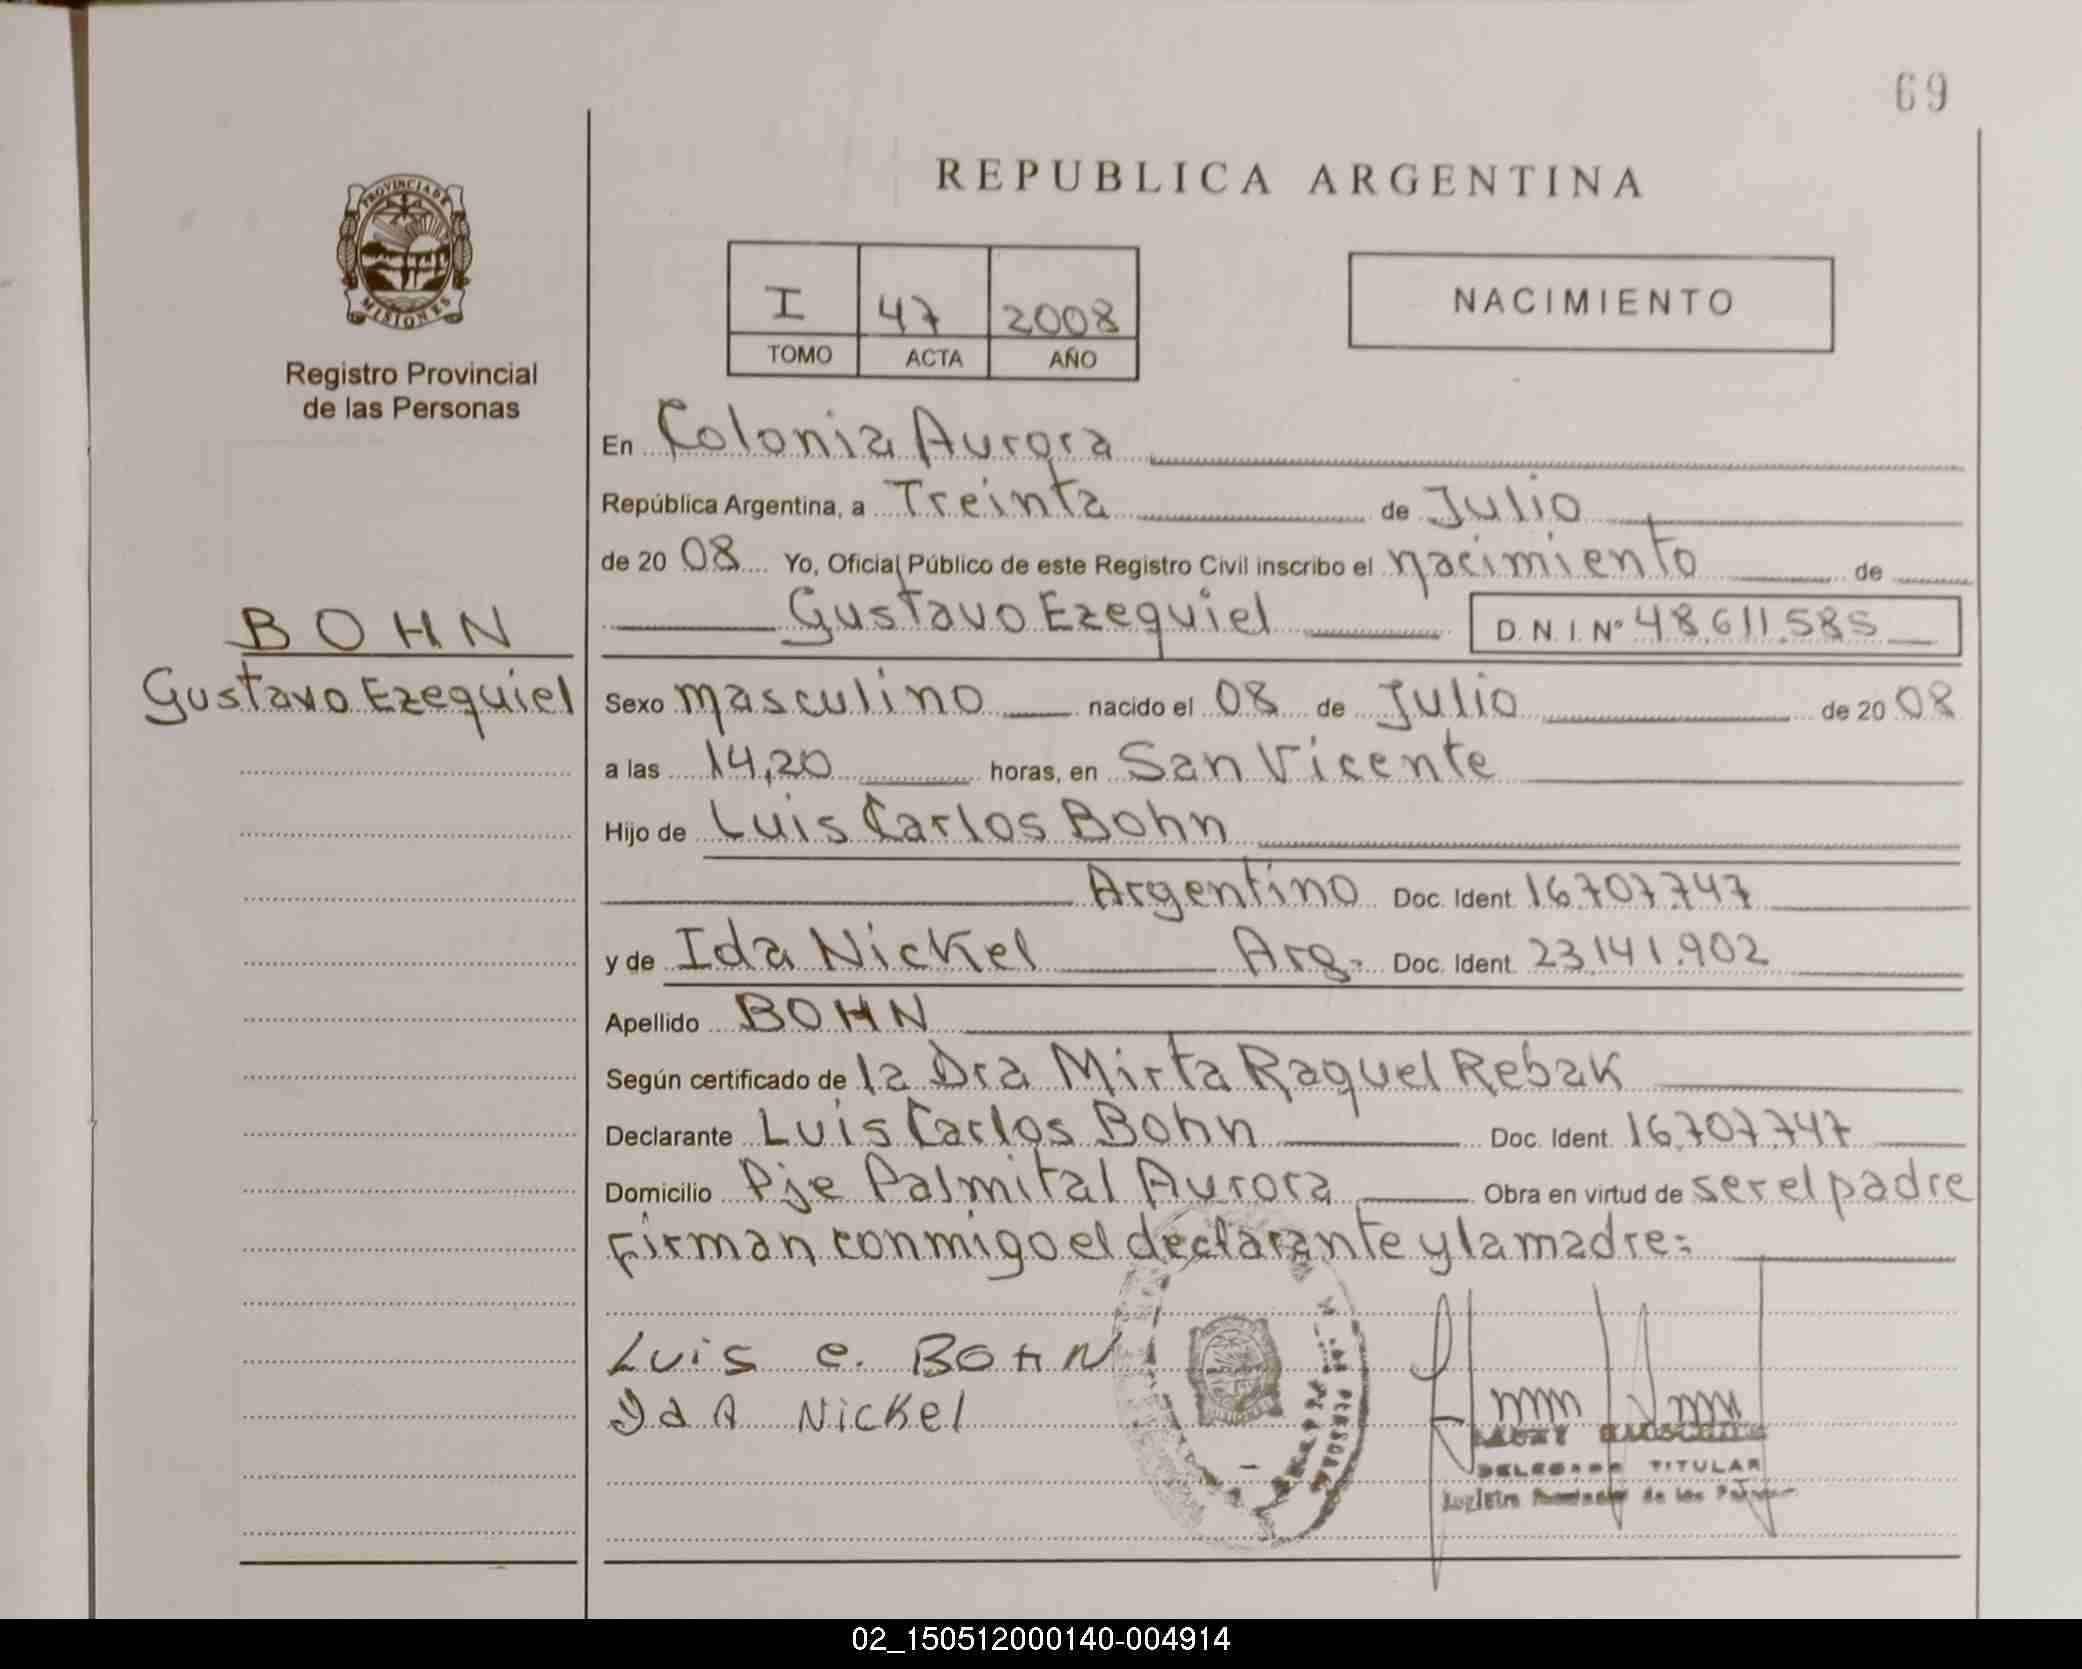 69
REPUBLICA ARGENTINA
PROVINCIA DE
MISIONES
Registro Provincial
de las Personas
I 47 2008
TOMO ACTA AÑO
NACIMIENTO
En Colonia Aurora
República Argentina, a Treinta de Julio
de 2008 Yo, Oficial Público de este Registro Civil inscribo el nacimiento de
Gustavo Ezequiel D.N.I. Nº 48.611.585
BOHN
Gustavo Ezequiel
Sexo masculino nacido el 08 de Julio de 2008
a las 14,20 horas, en San Vicente
Hijo de Luis Carlos Bohn
Argentino Doc. Ident. 16.707.747
y de Ida Nickel Arg. Doc. Ident. 23.141.902
Apellido BOHN
Según certificado de la Dra Mirta Raquel Rebak
Declarante Luis Carlos Bohn Doc. Ident. 16.707.747
Domicilio Pje Palmital Aurora Obra en virtud de ser el padre
Firman conmigo el declarante y la madre:
Luis c. BOHN
IdA Nickel
DELEGADO TITULAR
de las
02_150512000140-004914